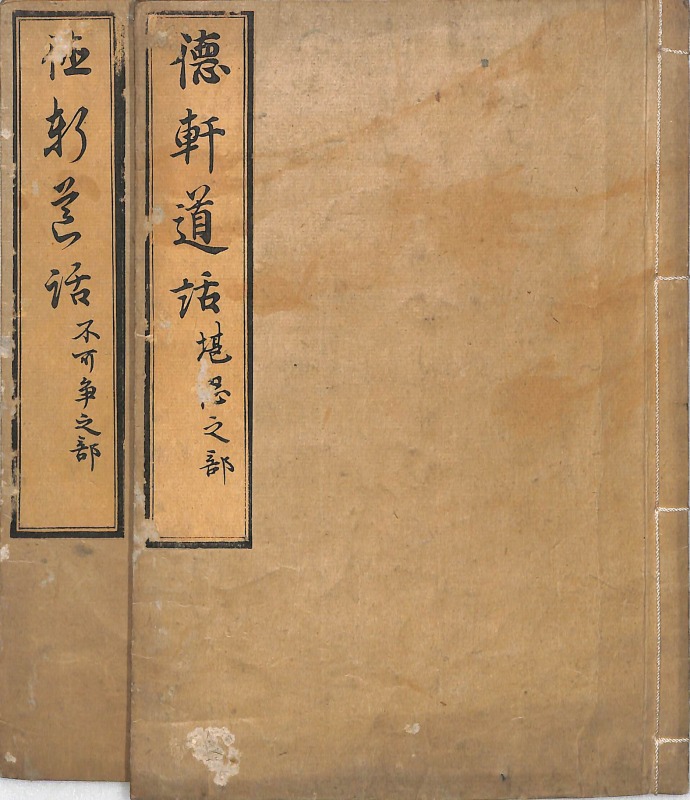 德軒道話 堪忍之部
德軒道話 不可争之部